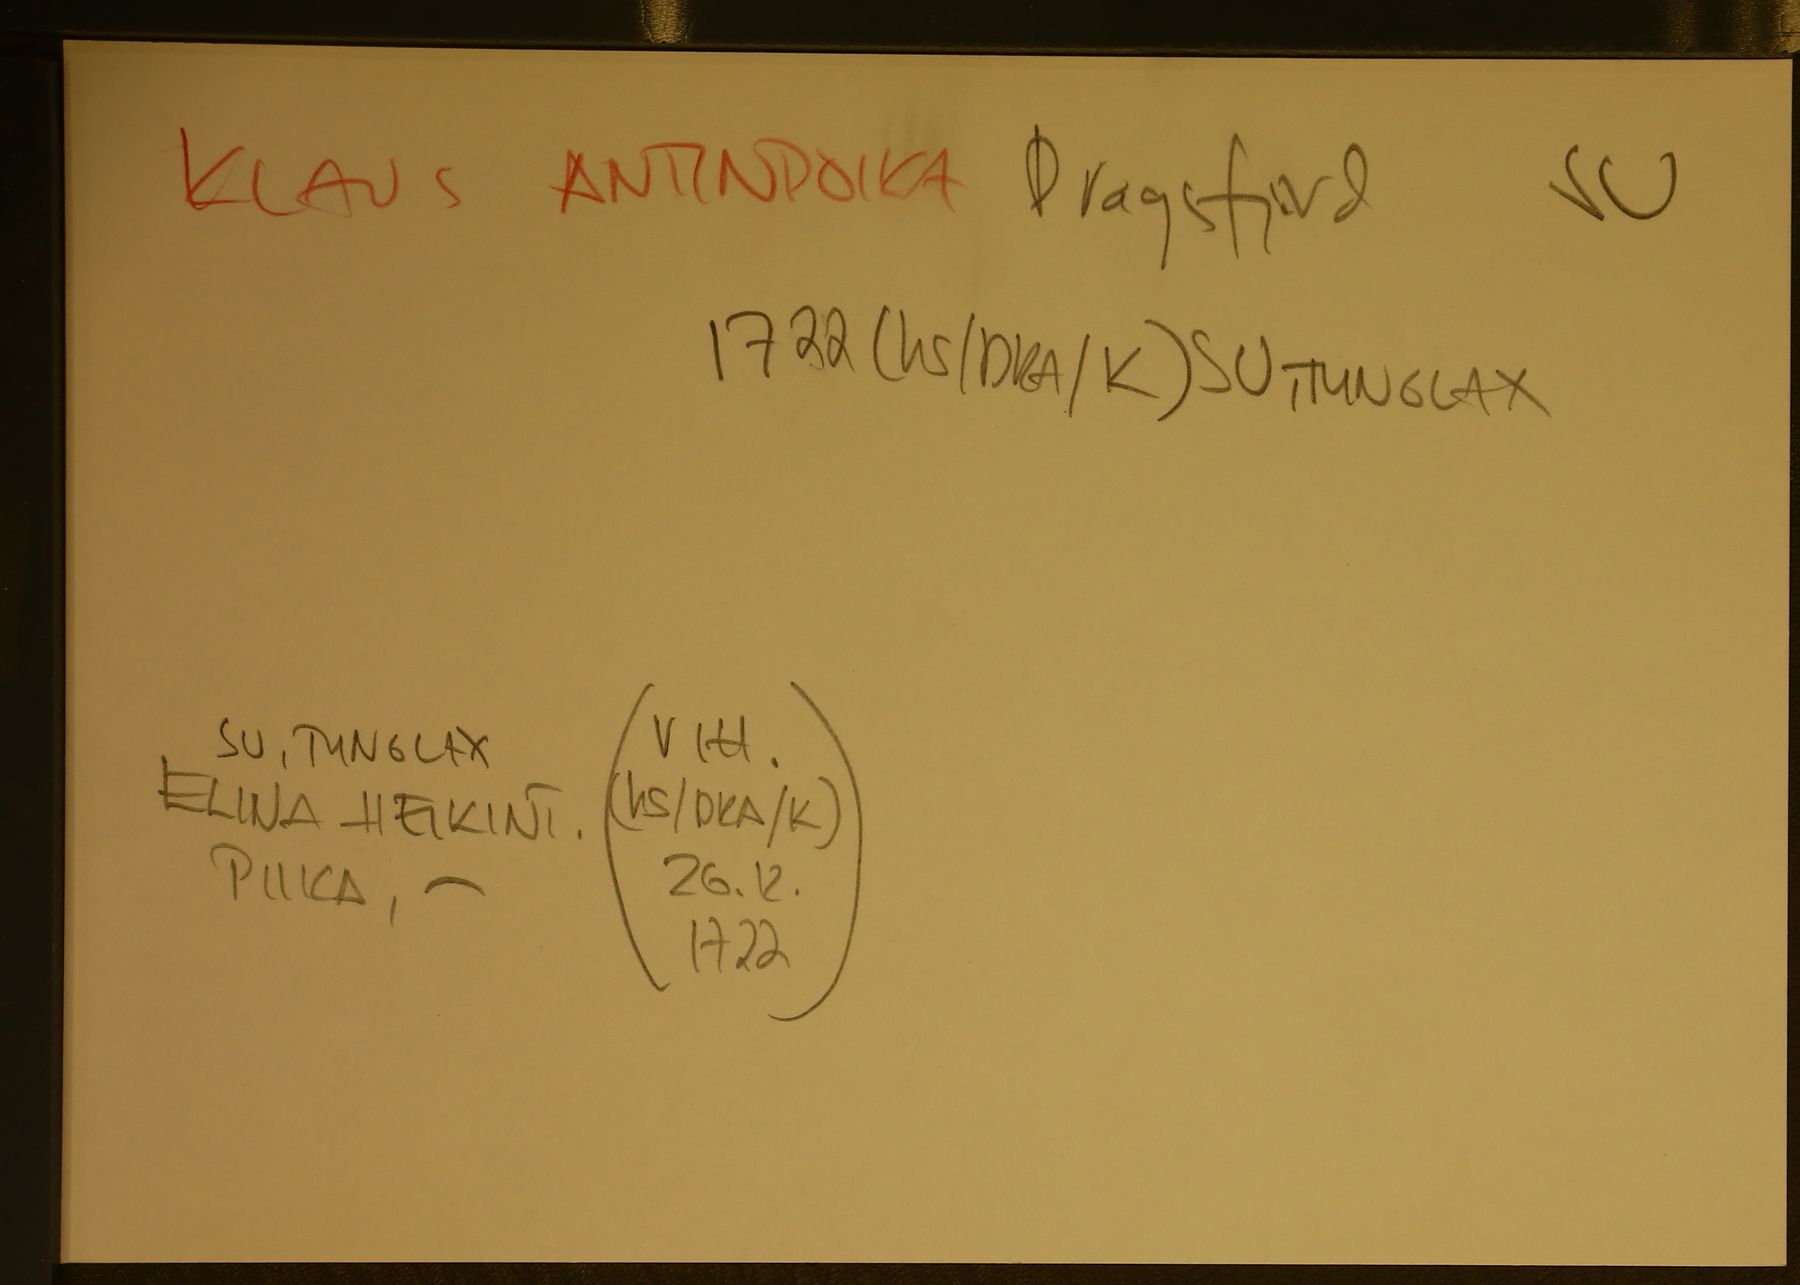 KLAUS ANTINPOIKA Dragsfjärd SU
1722 (hs/DKA/K) SU, TUNGLAX
SU, TUNGLAX
ELINA HEIKINT.
PIIKA,
(VIH.
(hs/DKA/K)
26.12.
1722)